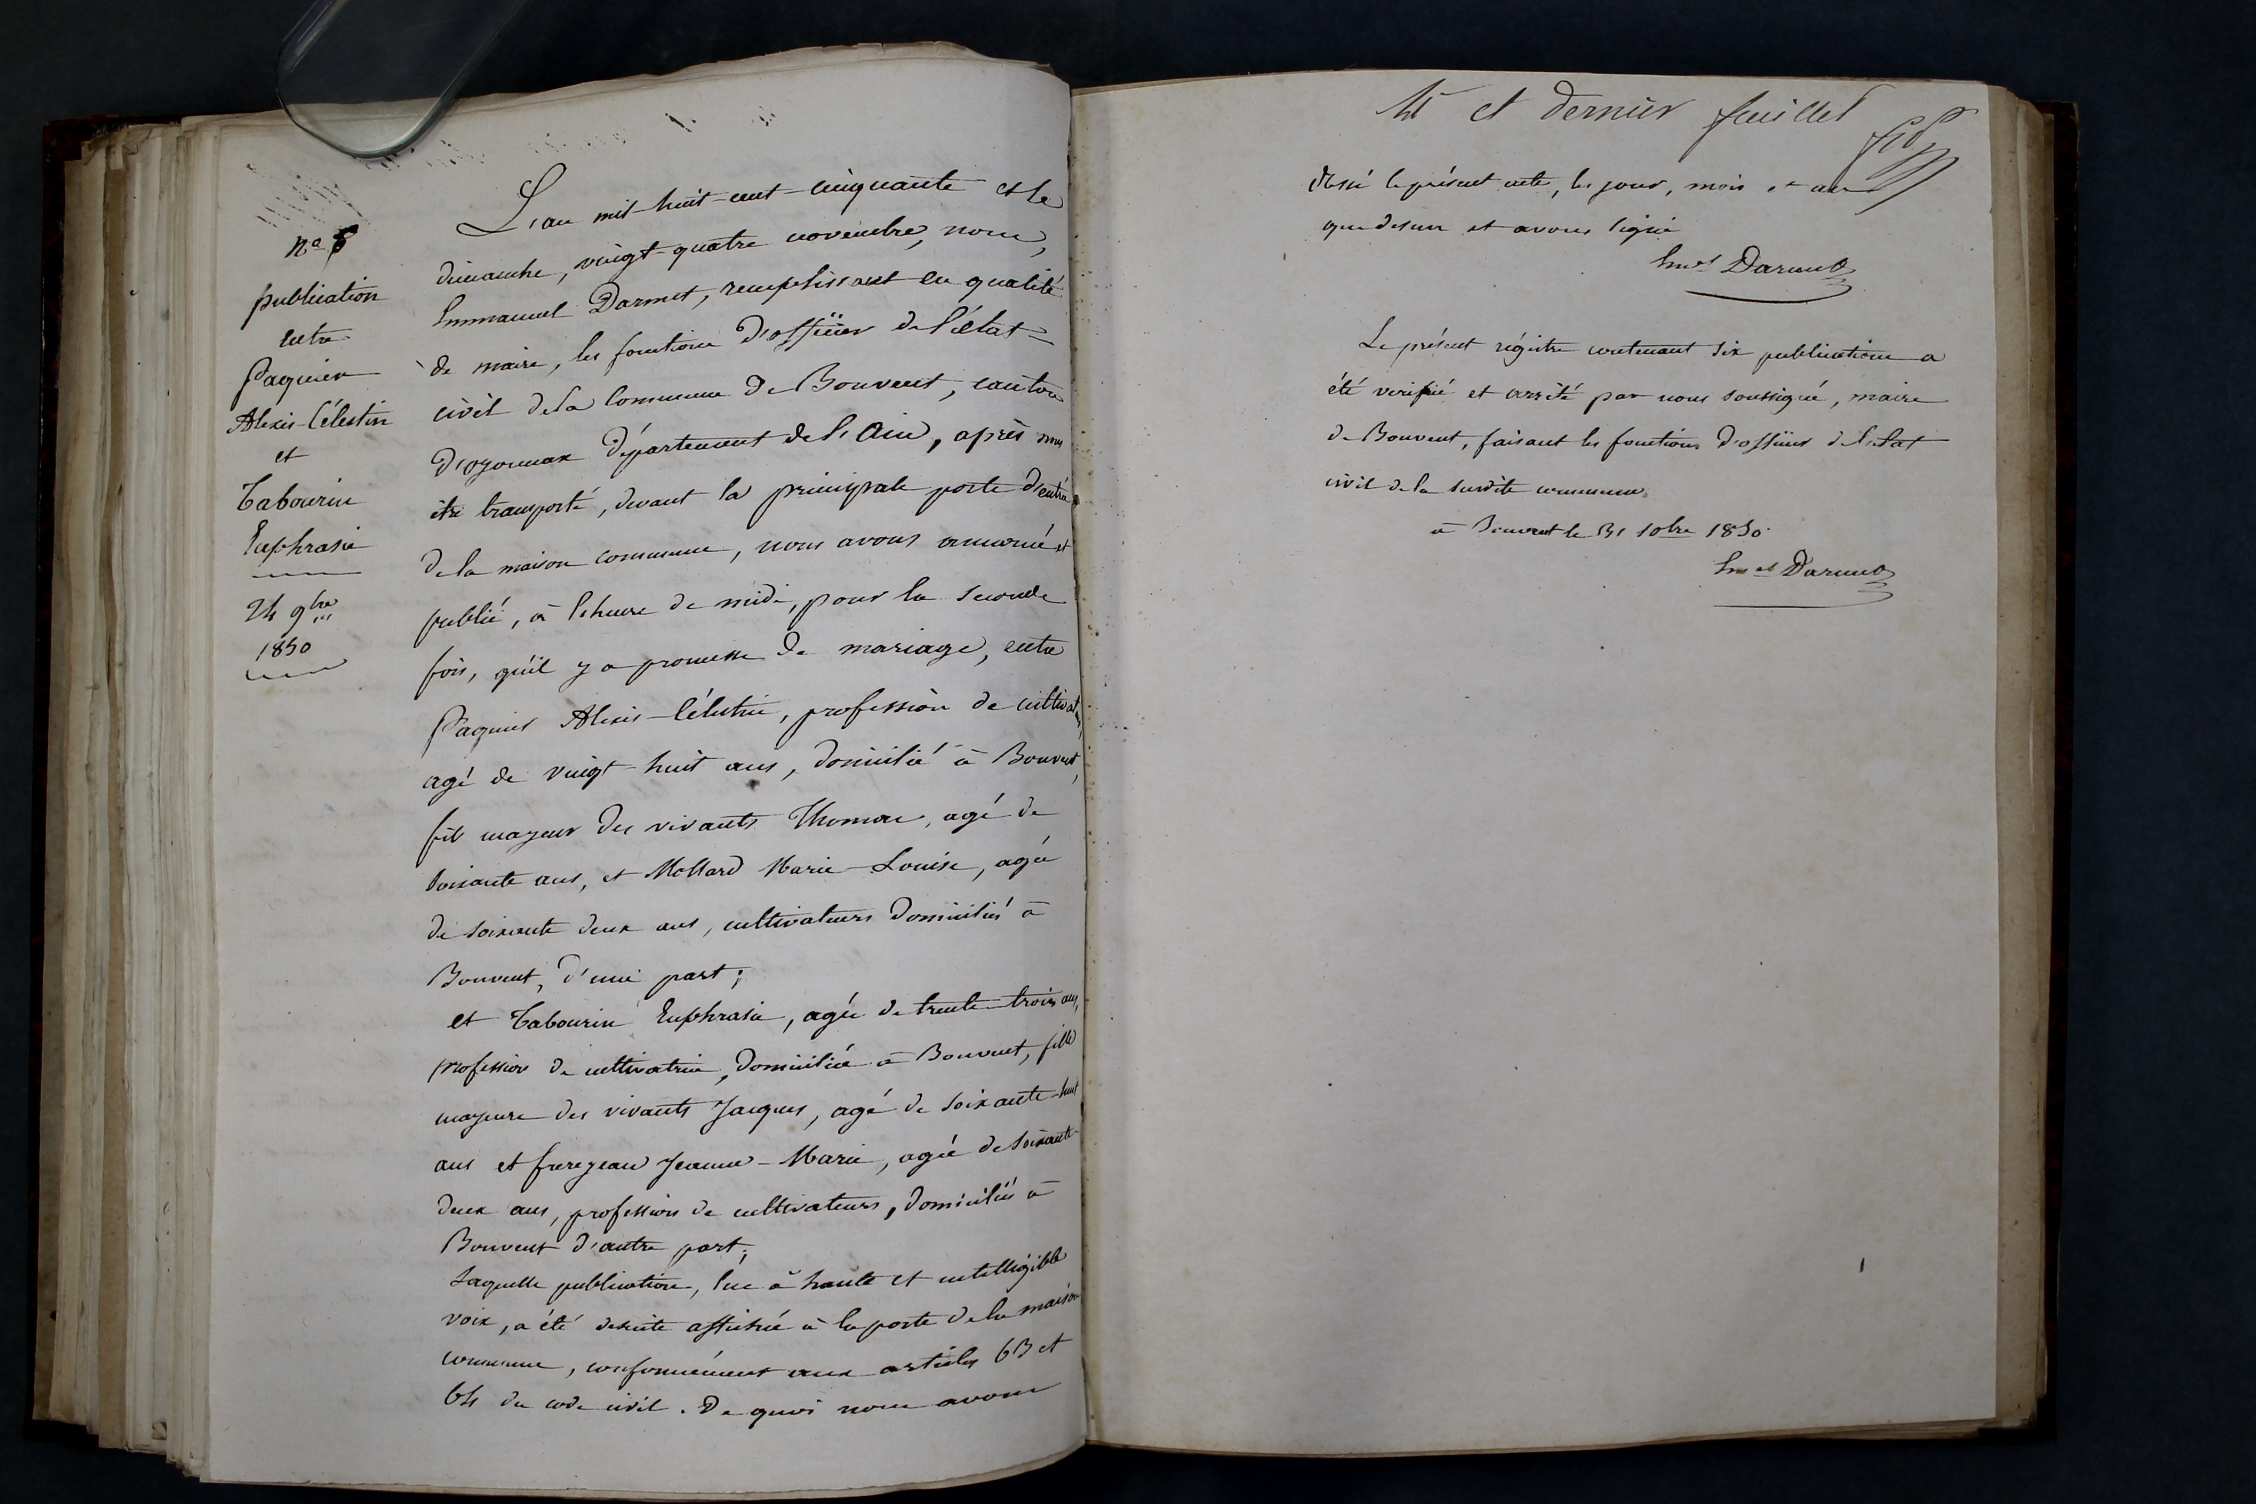 publication
entre
Paquier
Alexis-Célestin
et
Tabourin
Euphrasie
24 9bre
1850
L'an mil-huit-cent-cinquante et le
dimanche, vingt-quatre novembre, nous,
Emmanuel Darmet, remplissant en qualité
de maire, les fonctions d'officier de l'état-
civil de la commune de Bouvent, canton
d'oyonnax département de l'Ain, après nous
être transporté, devant la principale porte d'entrée
de la maison commune, nous avons annoncé et
publié, à l'heure de midi, pour la seconde
fois, qu'il y a promesse de mariage, entre
Paquier Alexis-Célestin, profession de cultivateur,
agé de vingt-huit ans, domicilié à Bouvent,
fils majeur des vivants Thomas, agé de
soixante ans, et Mollard Marie-Louise, agée
de soixante deux ans, cultivateurs domiciliés à
Bouvent, d'une part;
et Tabourin Euphrasie, agée de trente-trois ans,
profession de cultivatrice, domiciliée à Bouvent, fille
majeure des vivants Jacques, agé de soixante-huit
ans et Jeanne-Marie, agée de soixante-
deux ans, profession de cultivateurs, domiciliés à
Bouvent d'autre part;
Laquelle publication, lue à haute et intelligible
voix, a été desuite affichée à la porte de la maison
commune, conformément aux articles 63 et
64 du code civil. De quoi nous avons
et dernier feuillet
dressé le présent acte, les jour, mois et an
que dessus et avons signé
Emel Darmet
Le présent régistre contenant six publications a
été verifié et arrêté par nous soussigné, maire
de Bouvent, faisant les fonctions d'officier de l'état
civil de la susdite commune.
à Bouvent le 31 10bre 1850.
Emel Darmet